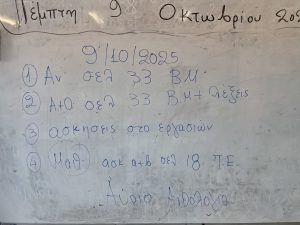 Πέμπτη 9 Οκτωβρίου 202
9/10/2025
① Αν σελ 33 Β.Μ.
② Α+Ο σελ 33 Β.Μ + λέξεις
③ ασκήσεις στο εργασιών
④ Μαθ ασκ α+β σελ 18 Τ.Ε.
Αύριο Ανθολόγιο